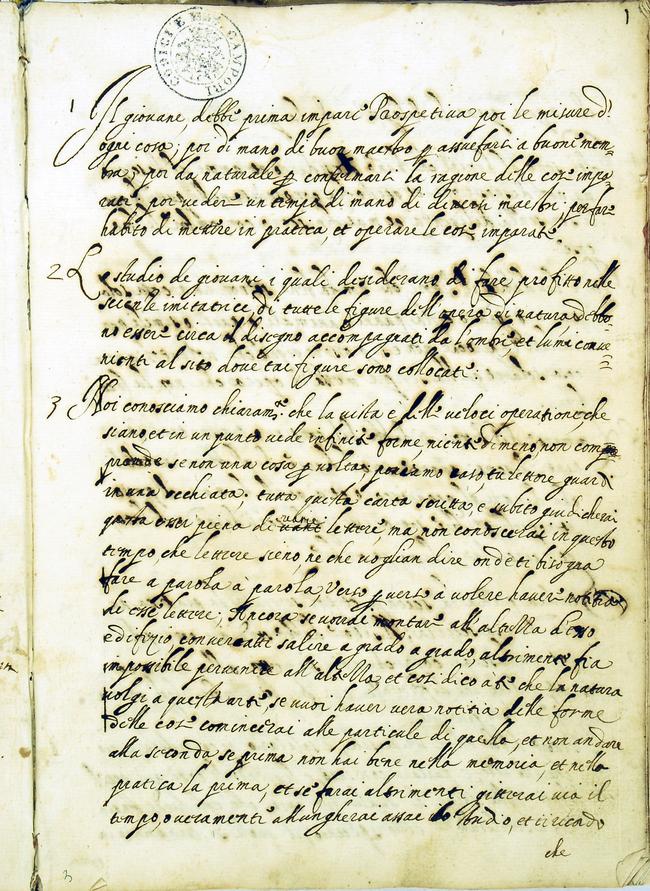 CODICI E MSS. CAMPORI
1
1 Il giovane, debbe prima imparar Prospetiva poi le misure d'
ogni cosa; poi di mano de buon maestro p assuefarsi a buoni mem=
bra; poi da naturale p confirmarsi la ragione delle cose impa
rate; poi veder un tempo di mano di diversi maestri per far
habito di mettere in pratica, et operare le cose imparate
2 Lo studio de giovani i quali desiderano di fare profitto nelle
scienze imitatrice, di tutte le figure dell'opere di natura debbo=
no esser circa il disegno accompagnati da l'ombre et lumi conve=
nienti al sito dove tai figure sono collocate.
3 Noi conosciamo chiaramte che la vista è dell' veloci operationi, che
siano, et in un punto vede infinite forme nientedimeno non com
prende se non una cosa p volta, poniamo caso, tu lettore guardi
in una occhiata, tutta questa carta scritta, e subito giudicherai
questa esser piena di varie lettere, ma non conoscerai in questo
tempo, che lettere sieno, ne che voglian dire onde ti bisogna
fare a parola a parola, verso p verso a volere haver notitia
di esse lettere; Ancora se vorrai montar all'altezza d'uno
edifizio converratti salire a grado a grado, altrimente fia
impossibile pervenire all'altezza; et così dico a te che la natura
volgi a quest'arte, se vuoi haver vera notitia delle forme
delle cose comincerai alle particule di quelle, et non andare
alla seconda se prima non hai bene nella memoria, et nella
pratica la prima, et se farai altrimenti gitterai via il
tempo, o veramenti allungherai assai lo studio, et ti ricordo
che